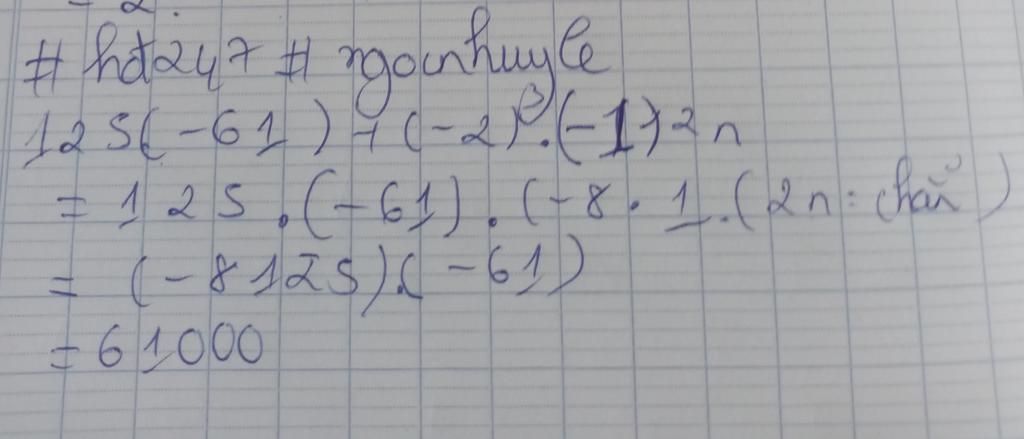 # hđ247 # ngocnhuyle
125(-61) + (-2)³.(-1)²n
= 125.(-61).(-8.1.(2n: chẵn)
= (-8125).(-61)
= 61000